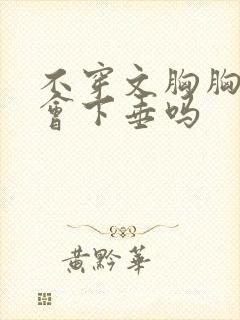 不穿文胸胸
會下垂吗
黄黔華